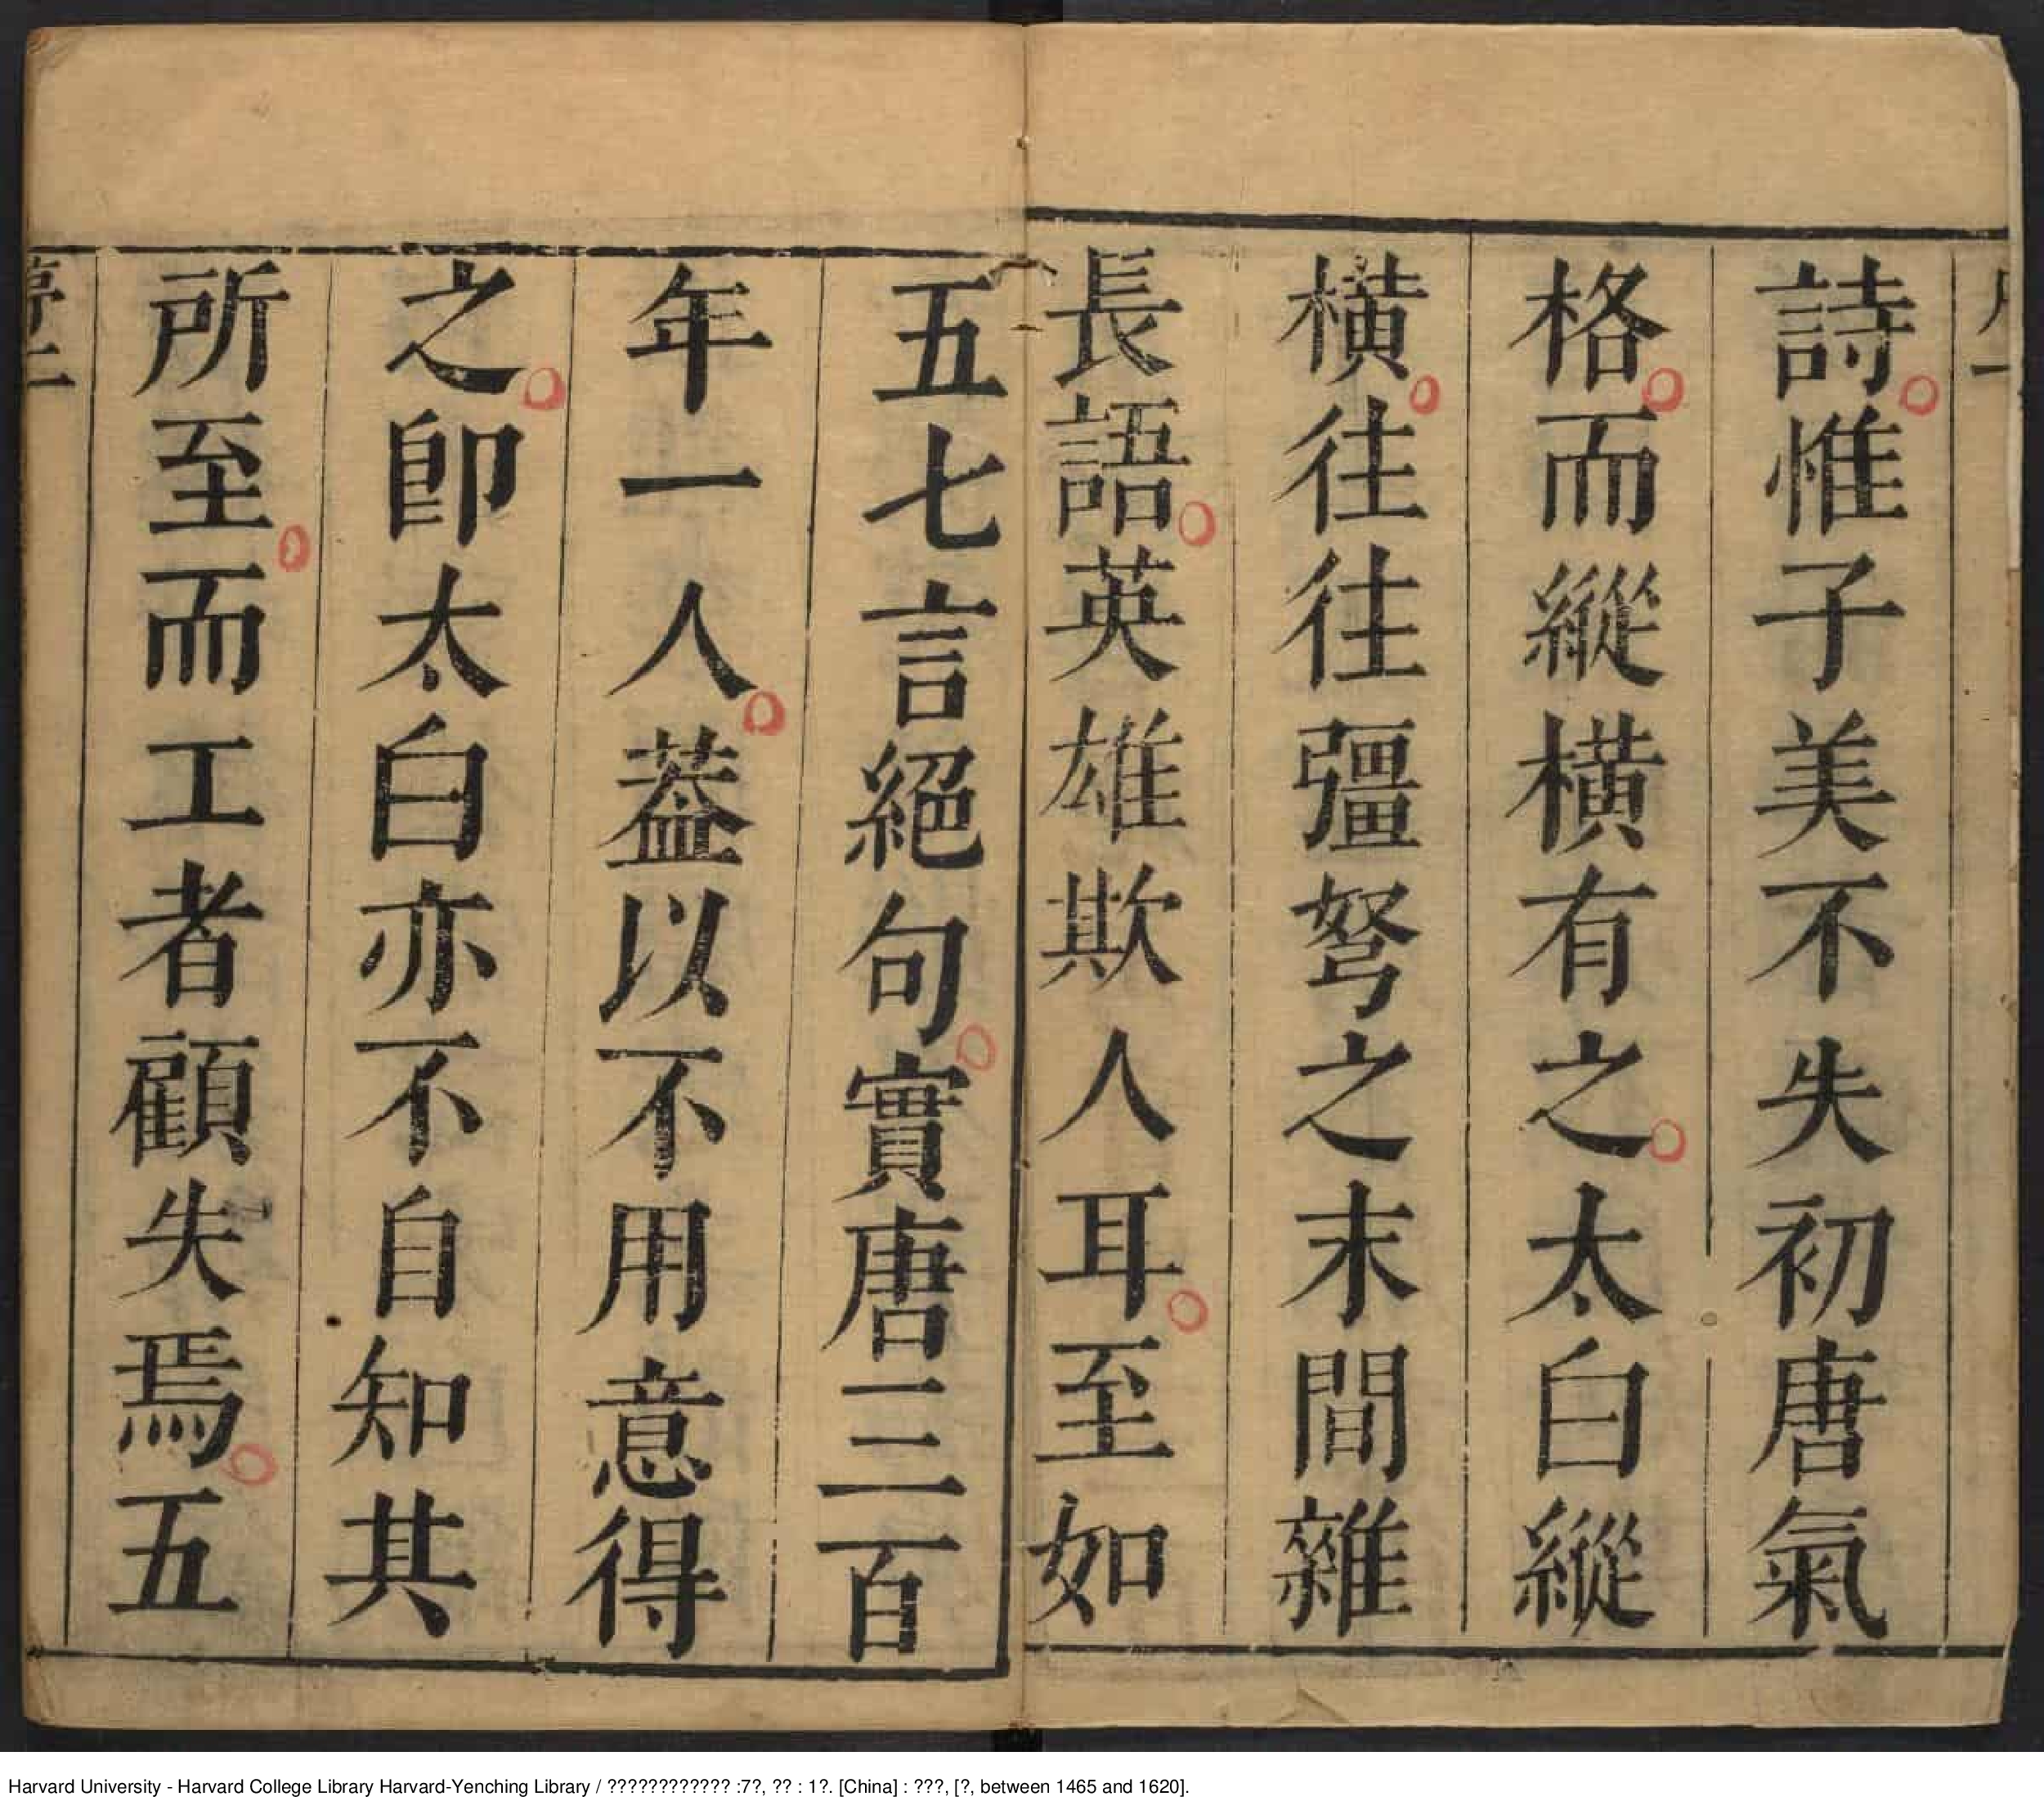 詩惟子美不失初唐氣
格而縱橫有之太白縱
橫往往彊弩之末間雜
長語英雄欺人耳至如
五七言絕句實唐三百
年一人葢以不用意得
之卽太白亦不自知其
所至而工者顧失焉五
Harvard University - Harvard College Library Harvard-Yenching Library / ???????????? :7?, ?? : 1?. [China] : ???, [?, between 1465 and 1620].